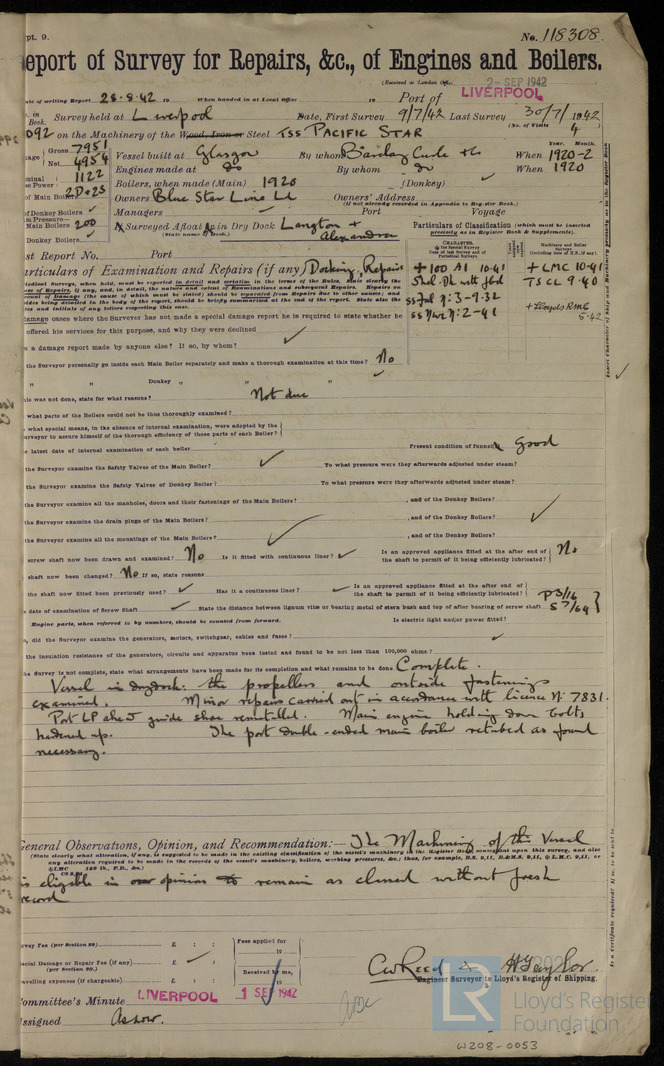 pt. 9.
No. 118308
eport of Survey for Repairs, &c., of Engines and Boilers.
(Received at London Office
2- SEP 1942
ate of writing Report 28.8.42 19 When handed in at Local Office 19 Port of LIVERPOOL
Survey held at Liverpool Date, First Survey 9/7/42 Last Survey 30/7/1942
Book. (No. of Visits 4
092 on the Machinery of the Wood, Iron or Steel TSS PACIFIC STAR
Gross 7951
Net 4954
Vessel built at Glasgow By whom Barclay Curle & Co When 1920-2
Year. Month.
1122 Engines made at do By whom do When 1920
2D+2S Boilers, when made (Main) 1920 (Donkey)
of Main Boilers Owners Blue Star Line Ld Owners' Address
(if not already recorded in Appendix to Register Book.)
of Donkey Boilers Managers Port Voyage
Main Boilers 200 Surveyed Afloat & in Dry Dock Langton + Alexandra
(State name of Dock.)
Donkey Boilers
Particulars of Classification (which must be inserted precisely as in Register Book & Supplements).
st Report No. Port
articulars of Examination and Repairs (if any) Docking, Repairs
+ 100 A1 10.41
+ LMC 10.41
TSCL 9.40
+ Lloyds RMC 5.42
offered his services for this purpose, and why they were declined
a damage report made by anyone else? If so, by whom?
the Surveyor personally go inside each Main Boiler separately and make a thorough examination at this time? No
" " Donkey " "
is was not done, state for what reasons? Not due
what parts of the Boilers could not be thoroughly examined?
what special means, in the absence of internal examination, were adopted by the
urveyor to assure himself of the thorough efficiency of those parts of each Boiler?
e latest date of internal examination of each boiler Present condition of funnels Good
the Surveyor examine the Safety Valves of the Main Boiler? To what pressure were they afterwards adjusted under steam?
the Surveyor examine the Safety Valves of Donkey Boiler? To what pressure were they afterwards adjusted under steam?
the Surveyor examine all the manholes, doors and their fastenings of the Main Boilers? , and of the Donkey Boilers?
the Surveyor examine the drain plugs of the Main Boilers? , and of the Donkey Boilers?
the Surveyor examine all the mountings of the Main Boilers? , and of the Donkey Boilers?
screw shaft now been drawn and examined? No Is it fitted with continuous liner? Is an approved appliance fitted at the after end of the shaft to permit of it being efficiently lubricated? No
shaft now been changed? No If so, state reasons
the shaft now fitted been previously used? Has it a continuous liner? Is an approved appliance fitted at the after end of the shaft to permit of it being efficiently lubricated?
e date of examination of Screw Shaft State the distance between lignum vitæ or bearing metal of stern bush and top of after bearing of screw shaft P 3/16 S 7/64
Engine parts, when referred to by numbers, should be counted from forward. Is electric light and/or power fitted?
, did the Surveyor examine the generators, motors, switchgear, cables and fuses?
the insulation resistance of the generators, circuits and apparatus been tested and found to be not less than 100,000 ohms?
he Survey is not complete, state what arrangements have been made for its completion and what remains to be done Complete.
Vessel in drydock: the propellers and outside fastenings
examined. Minor repairs carried out in accordance with licence No 7831.
Port LP ahead guide shoe remetalled. Main engine holding down bolts
hardened up. The port double-ended main boiler retubed as found
necessary.
General Observations, Opinion, and Recommendation:— The Machinery of this Vessel
(State clearly what alteration, if any, is suggested to be made in the existing classification of the vessel's machinery in the Register Book consequent upon this survey, and also
any alteration required to be made in the records of the vessel's machinery, boilers, working pressures, &c.; thus, for example, B.S. 9,11, B&M.S. 9,11, or L.M.C. 9,11, or
is eligible in our opinion to remain as classed without fresh
record
rvey Fee (per Section 29) £ : : Fees applied for
19
ecial Damage or Repair Fee (if any) £ : :
(per Section 29.) Received by me,
avelling expenses (if chargeable) £ : : 19
CW Reed & H Taylor.
Engineer Surveyor to Lloyd's Register of Shipping.
ommittee's Minute LIVERPOOL 1 SEP 1942
ssigned As now.
LR
Lloyd's Register
Foundation
W208-0053